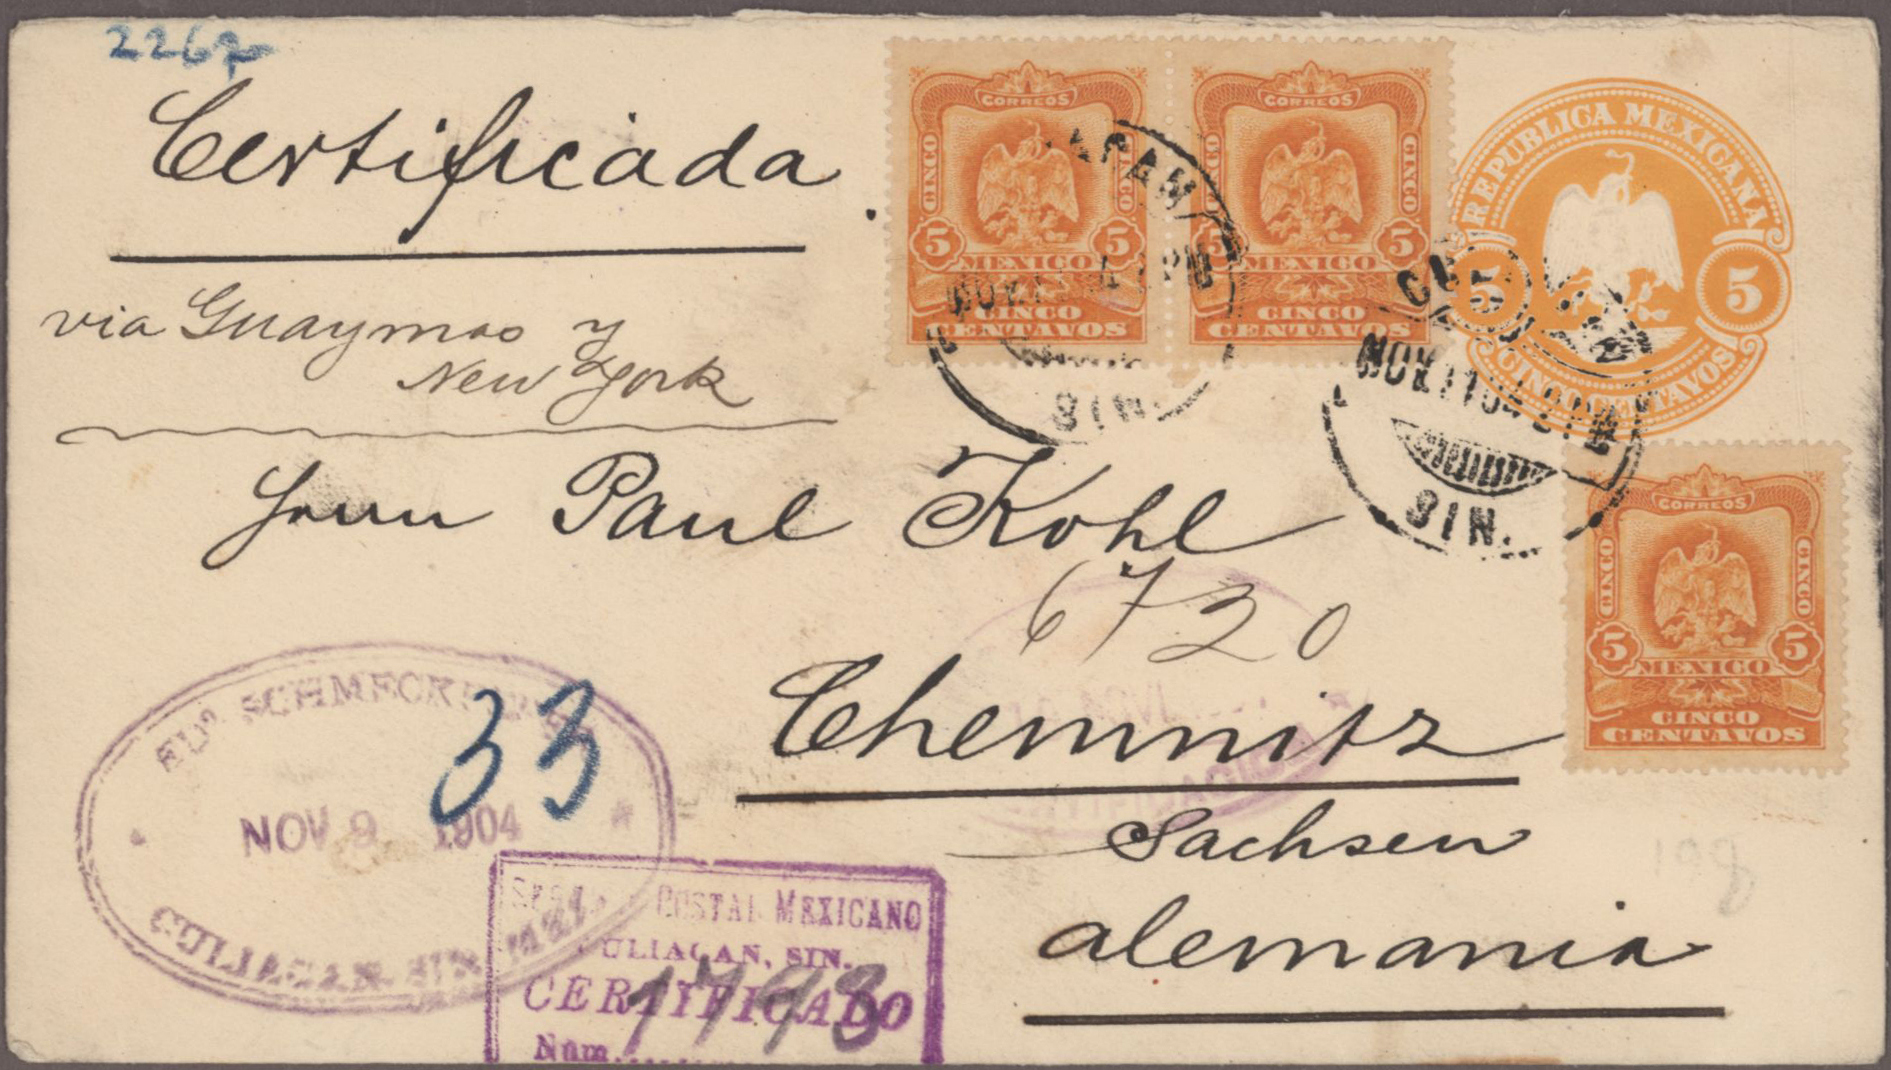 2267
Certificada
via Guaymas y
New York
Herrn Paul Kohl
6720
Chemnitz
Sachsen
alemania
33
1793
198
CORREOS
CINCO
CINCO
5
5
MEXICO
CINCO
CENTAVOS
CORREOS
CINCO
CINCO
5
5
MEXICO
CINCO
CENTAVOS
REPUBLICA MEXICANA
5
5
CINCO CENTAVOS
CORREOS
CINCO
CINCO
5
5
MEXICO
CINCO
CENTAVOS
SIN.
NOV 11 04 2 PM
SIN.
NOV 9 1904
CULIACAN
POSTAL MEXICANO
CULIACAN, SIN.
CERTIFICADO
Num.